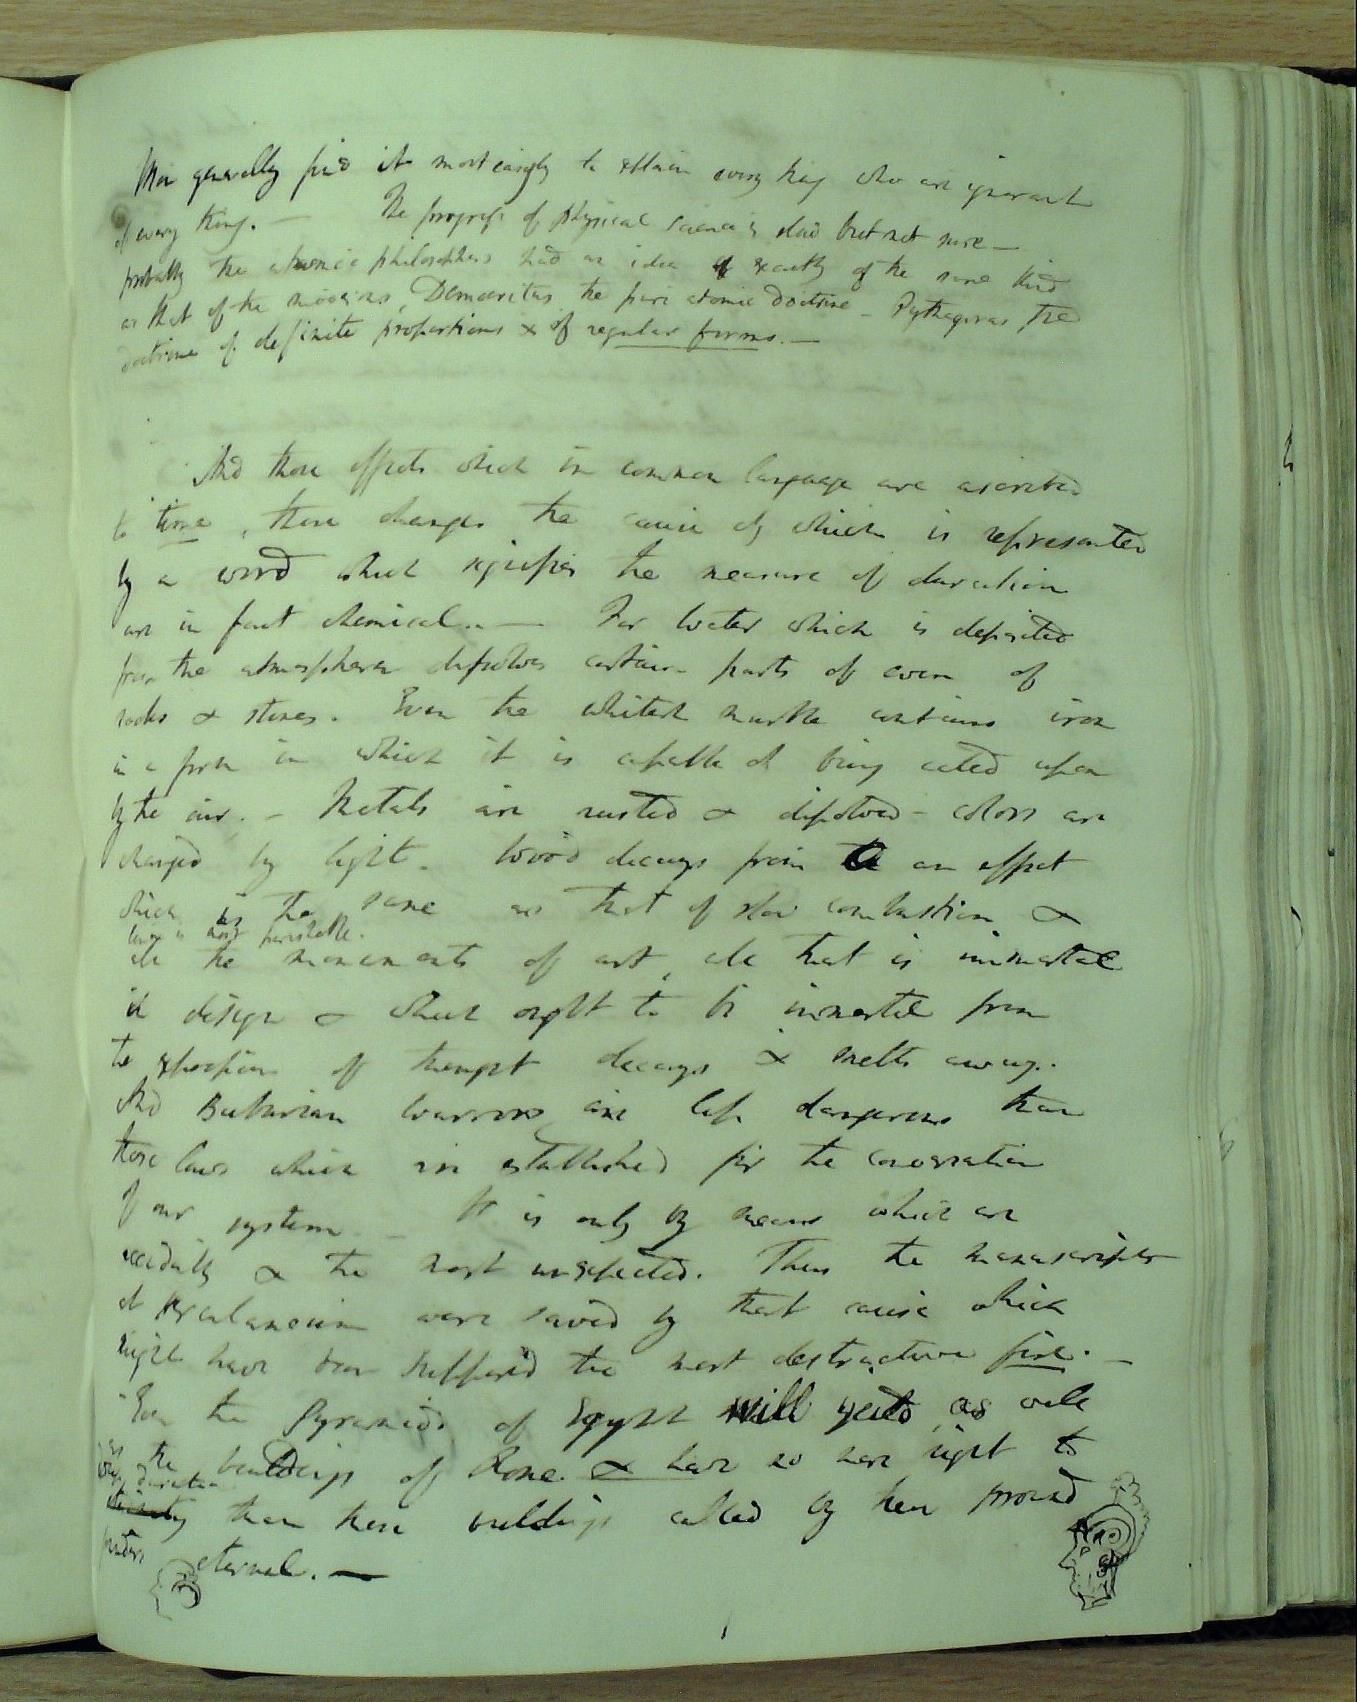 Men generally find it most easy to explain every thing who are ignorant
of every thing. — The progress of physical science is slow but not sure —
probably the atomic philosophers had an idea of exactly of the same kind
as that of the moderns, Democritus the pure atomic doctrine — Pythagoras the
doctrine of definite proportions & of regular forms. —
And those effects which in common language are ascribed
to time, those changes the cause of which is represented
by a word which signifies the measure of duration
are in fact chemical. — For water which is deposited
from the atmosphere dissolves certain parts of even of
rocks & stones. Even the whitest marble contains iron
in a form in which it is capable of being acted upon
by the air. — Metals are rusted & dissolved — colors are
changed by light. Wood decays from an effect
which is the same as that of slow combustion &
is most perishable.
all the monuments of art, all that is immortal
in design & which ought to be immortal from
the expression of thought decays & melts away.
And Barbarian warriors are less dangerous than
those laws which are established for the conservation
of our system. — It is only by means which are
accidental & the most unexpected. Thus the manuscripts
at Herculaneum were saved by that cause which
might have been supposed the most destructive fire. —
Even the Pyramids of Egypt will yield as well
as the buildings of Rome. & have no more right to
duration
than those buildings called by their proud
founders eternal. —